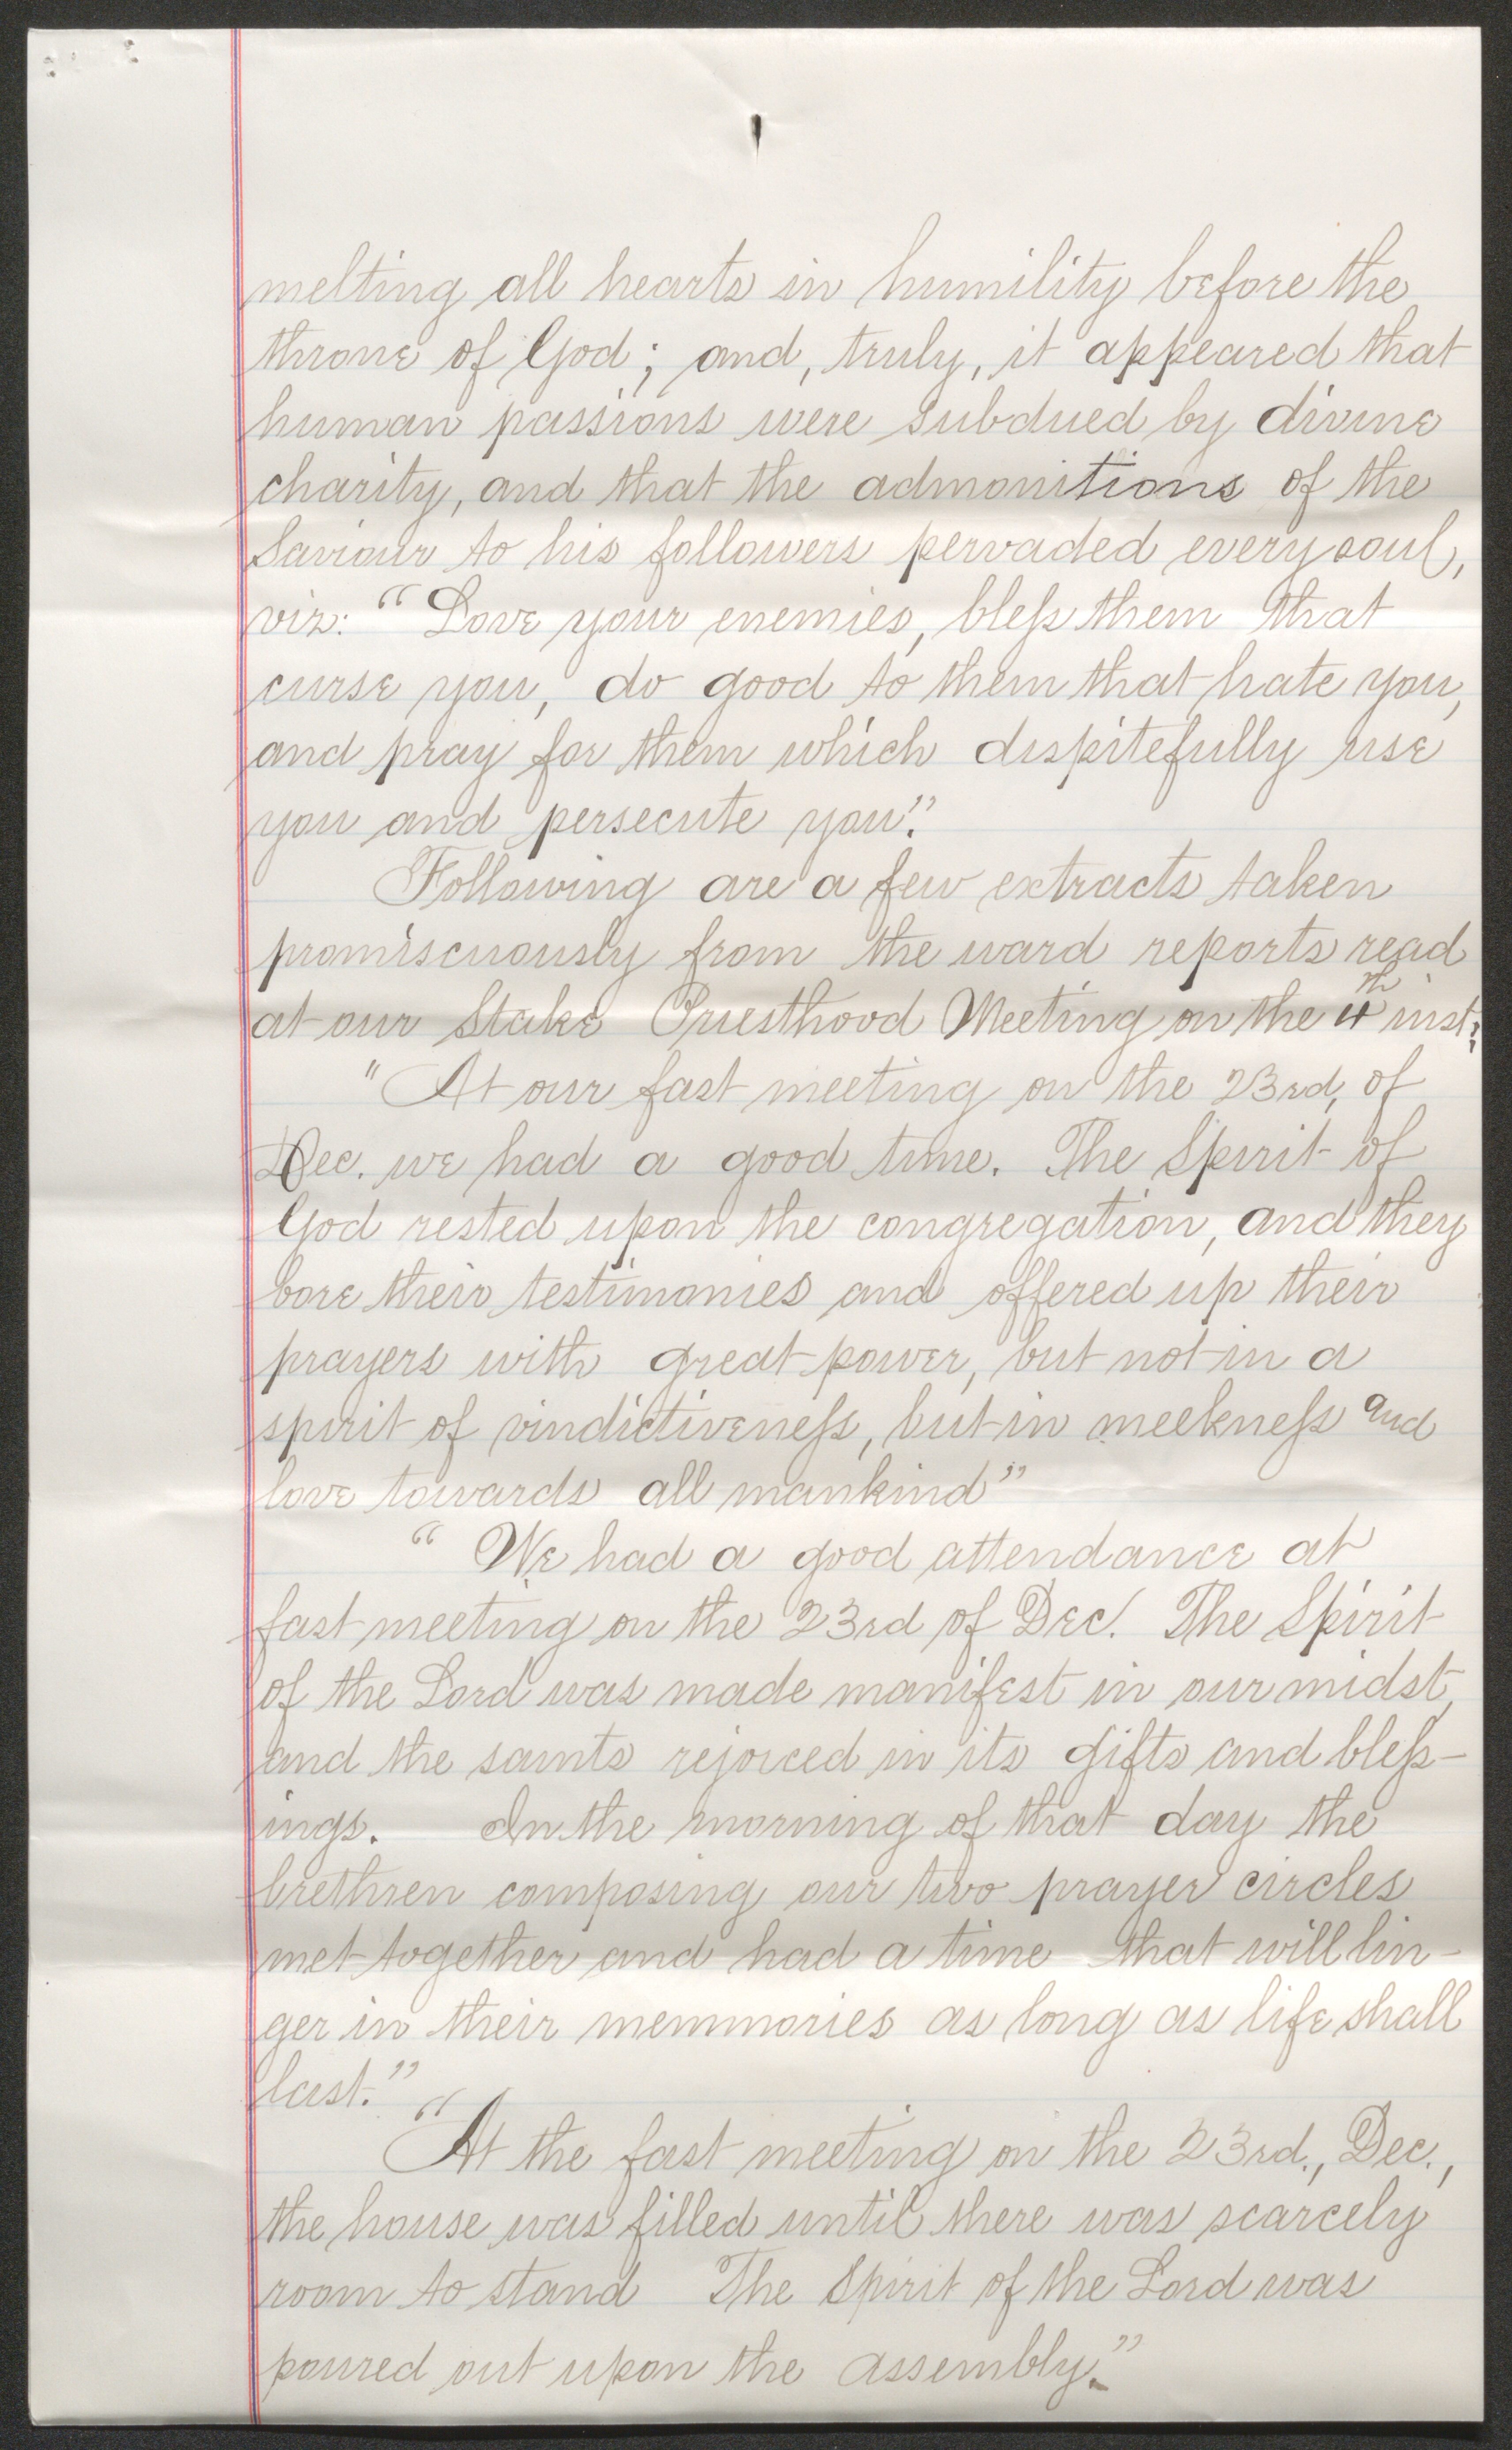 melting all hearts in humility before the
throne of God; and, truly, it appeared that
human passions were subdued by divine
charity, and that the admonitions of the
Saviour to his followers pervaded every soul,
viz: "Love your enemies, bless them that
curse you, do good to them that hate you,
and pray for them which dispitefully use
you and persecute you."
Following are a few extracts taken
promiscuously from the ward reports read
at our Stake Priesthood Meeting on the 4th inst:
"At our fast meeting on the 23rd, of
Dec. we had a good time. The Spirit of
God rested upon the congregation, and they
bore their testimonies and offered up their
prayers with great power, but not in a
spirit of vindictiveness, but in meekness and
love towards all mankind"
"We had a good attendance at
fast meeting on the 23rd of Dec. The Spirit
of the Lord was made manifest in our midst,
and the saints rejoiced in its gifts and bless-
ings. In the morning of that day the
brethren composing our two prayer circles
met together and had a time that will lin-
ger in their memmories as long as life shall
last."
"At the fast meeting on the 23rd., Dec.,
the house was filled until there was scarcely
room to stand The Spirit of the Lord was
poured out upon the assembly."